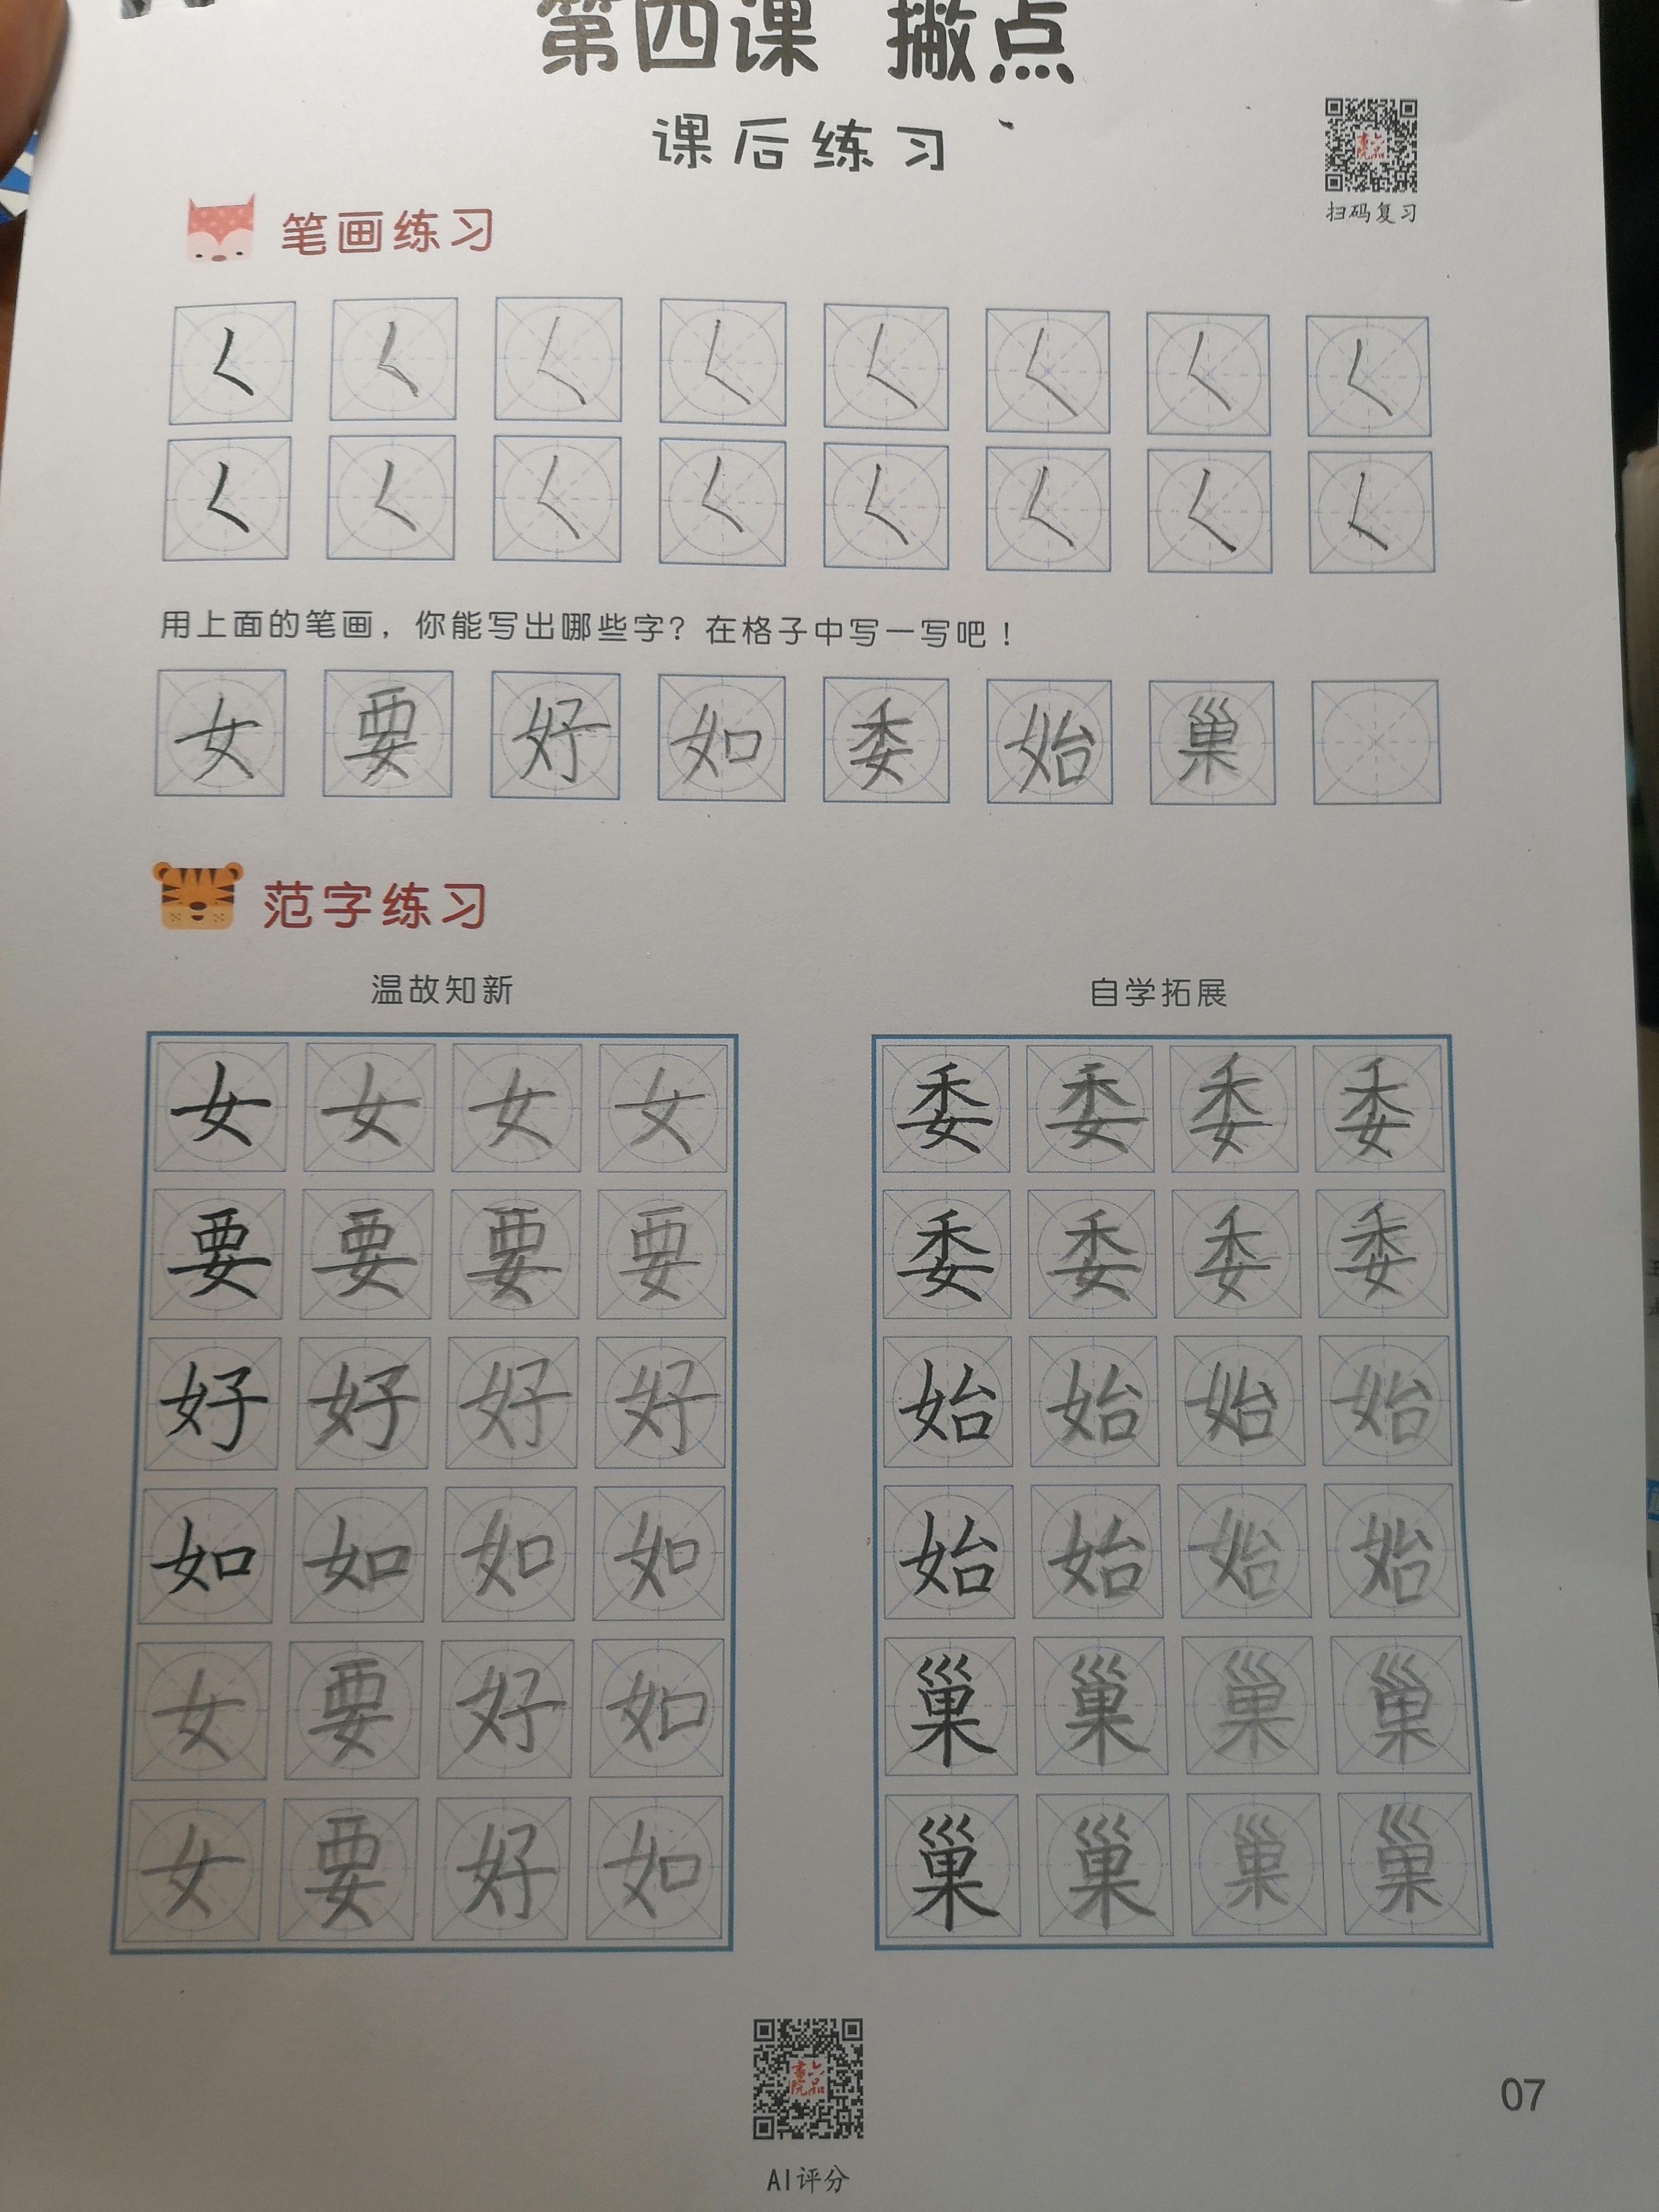 第四课 撇点
课后练习
扫码复习
笔画练习
𡿨 𡿨 𡿨 𡿨 𡿨 𡿨 𡿨 𡿨
𡿨 𡿨 𡿨 𡿨 𡿨 𡿨 𡿨 𡿨
用上面的笔画，你能写出哪些字？在格子中写一写吧！
女 要 好 如 委 始 巢
范字练习
温故知新
女 女 女 女
要 要 要 要
好 好 好 好
如 如 如 如
女 要 好 如
女 要 好 如
自学拓展
委 委 委 委
委 委 委 委
始 始 始 始
始 始 始 始
巢 巢 巢 巢
巢 巢 巢 巢
AI评分
07